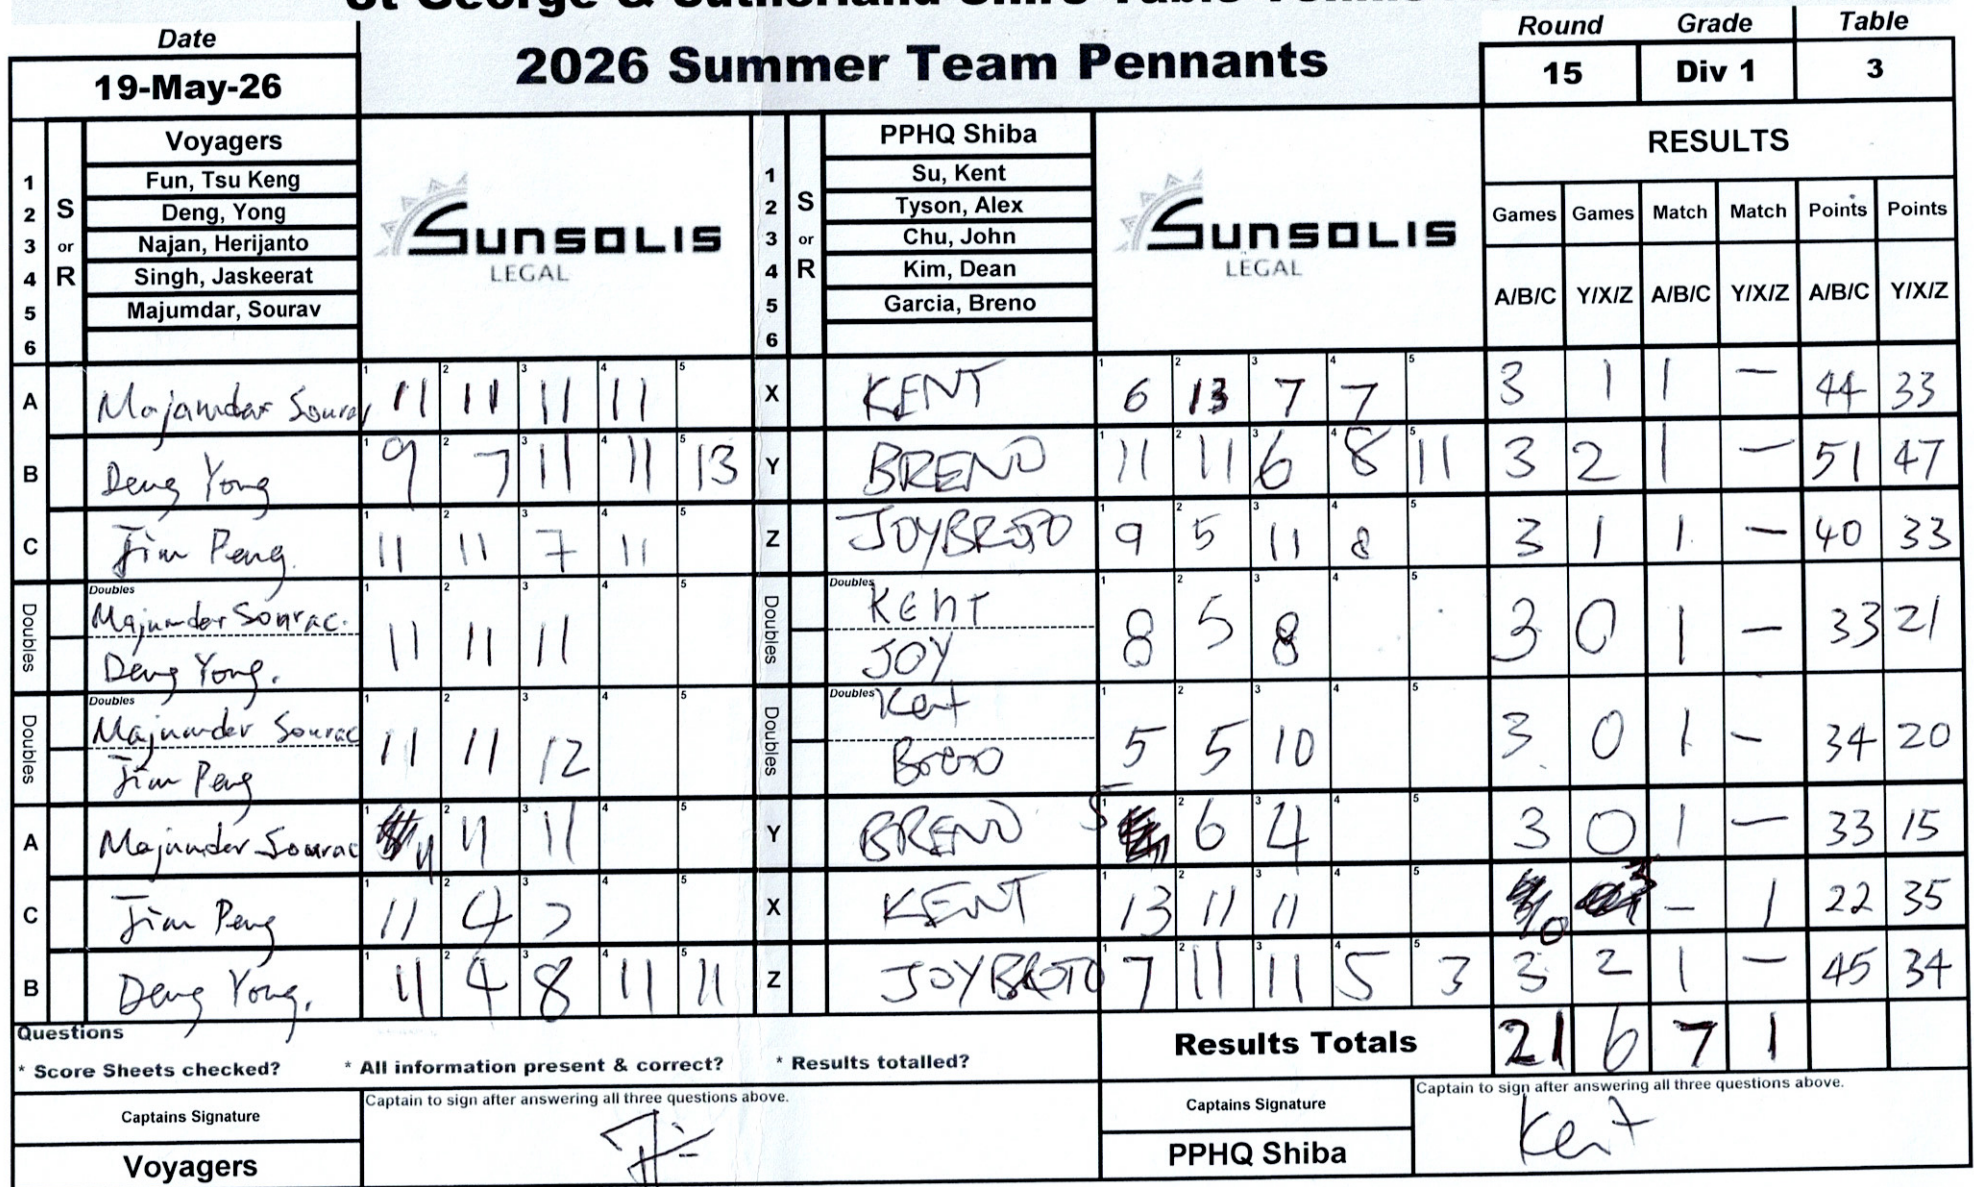 Date
19-May-26
2026 Summer Team Pennants
Round Grade Table
15 Div 1 3
S or R
1 2 3 4 5 6
Voyagers
Fun, Tsu Keng
Deng, Yong
Najan, Herijanto
Singh, Jaskeerat
Majumdar, Sourav
SUNSOLIS
LEGAL
S or R
1 2 3 4 5 6
PPHQ Shiba
Su, Kent
Tyson, Alex
Chu, John
Kim, Dean
Garcia, Breno
SUNSOLIS
LEGAL
RESULTS
Games Games Match Match Points Points
A/B/C Y/X/Z A/B/C Y/X/Z A/B/C Y/X/Z
A Majamdar Sourav 11 11 11 11 X KENT 6 13 7 7 3 1 1 — 44 33
B Deng Yong 9 7 11 11 13 Y BRENO 11 11 6 8 11 3 2 1 — 51 47
C Jim Peng 11 11 7 11 Z JOYBROTO 9 5 11 8 3 1 1 — 40 33
Doubles Majumder Sourac. Deng Yong. 11 11 11 Doubles Kent JOY 8 5 8 3 0 1 — 33 21
Doubles Majumder Sourac Jim Peng 11 11 12 Doubles Kent Breno 5 5 10 3 0 1 — 34 20
A Majumder Sourac 11 11 11 Y BRENO 5 6 4 3 0 1 — 33 15
C Jim Peng 11 4 7 X KENT 13 11 11 0 3 — 1 22 35
B Deng Yong. 11 4 8 11 11 Z JOYBROTO 7 11 11 5 3 3 2 1 — 45 34
Questions
* Score Sheets checked? * All information present & correct? * Results totalled?
Results Totals 21 6 7 1
Captains Signature
Captain to sign after answering all three questions above.
Voyagers
Captains Signature
Captain to sign after answering all three questions above.
Kent
PPHQ Shiba